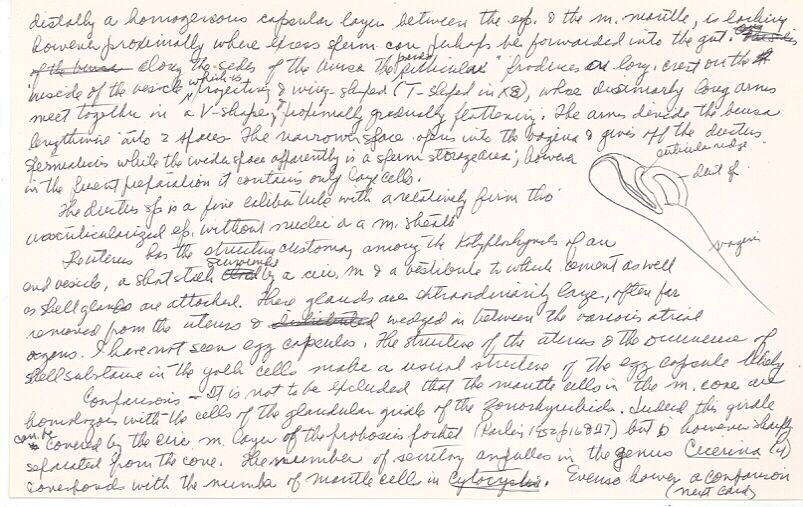 distally a homogenous capsular layer between the ep. & the m. mantle, is lacking
however proximally where excess sperm can perhaps be forwarded into the gut.
of the bursa along the sides of the bursa the "pseudo cuticular" produces a long. crest on the
inside of the vesicle which is projecting & wing-shaped (T-shaped in XS), whose distinarly long arms
meet together in a V-shape, proximally gradually flattening. The arms divide the bursa
lengthwise into 2 spaces. The narrower space opens into the vagina & gives off the ductus
spermaticus while the wider space apparently is a sperm storage area, however
in the present preparation it contains only large cells.
cuticular ridge
duct sp.
vagina
The ductus sp is a fine caliber tube with a relatively firm tho
vacuticularized ep. without nuclei or a m. sheath
Ro uterus has the structure customary among the Polycystidids of an
end vesicle, a short stalk surrounded by a circ. m & a vestibule to which cement as well
as shell glands are attached. These glands are extraordinarily large, often far
removed from the uterus & distributed wedged in between the various atrial
organs. I have not seen egg capsules. The structure of the uterus & the occurrence of
shell substance in the yolk cells make a usual structure of the egg capsule likely
Comparisons - It is not to be excluded that the mantle cells in the m. cone are
homologous with the cells of the glandular girdle of the Gonorhynchida. Indeed this girdle
can be covered by the circ. m. layer of the proboscis pocket (Karling 1952 p 16 & 27) but is however sharply
separated from the cone. The number of secretory ampullae in the genus Cicerina (4)
corresponds with the number of mantle cells in Cytocystis. Even so however a comparison
(next card)